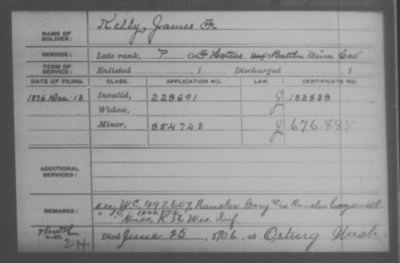 NAME OF SOLDIER: Kelly, James F.
SERVICE: Late rank, P Co. Battn Minn Cav
TERM OF SERVICE: Enlisted , 1 Discharged , 1
DATE OF FILING. CLASS. APPLICATION NO. LAW. CERTIFICATE NO.
1876 Dec. 13 Invalid, 228691 J 183838
Widow,
Minor, 854743 J 676.885
ADDITIONAL SERVICES:
REMARKS: W.C. 492607 Ransler
K 36 Wis. Inf
Died June 25, 1906, at Orting Wash.